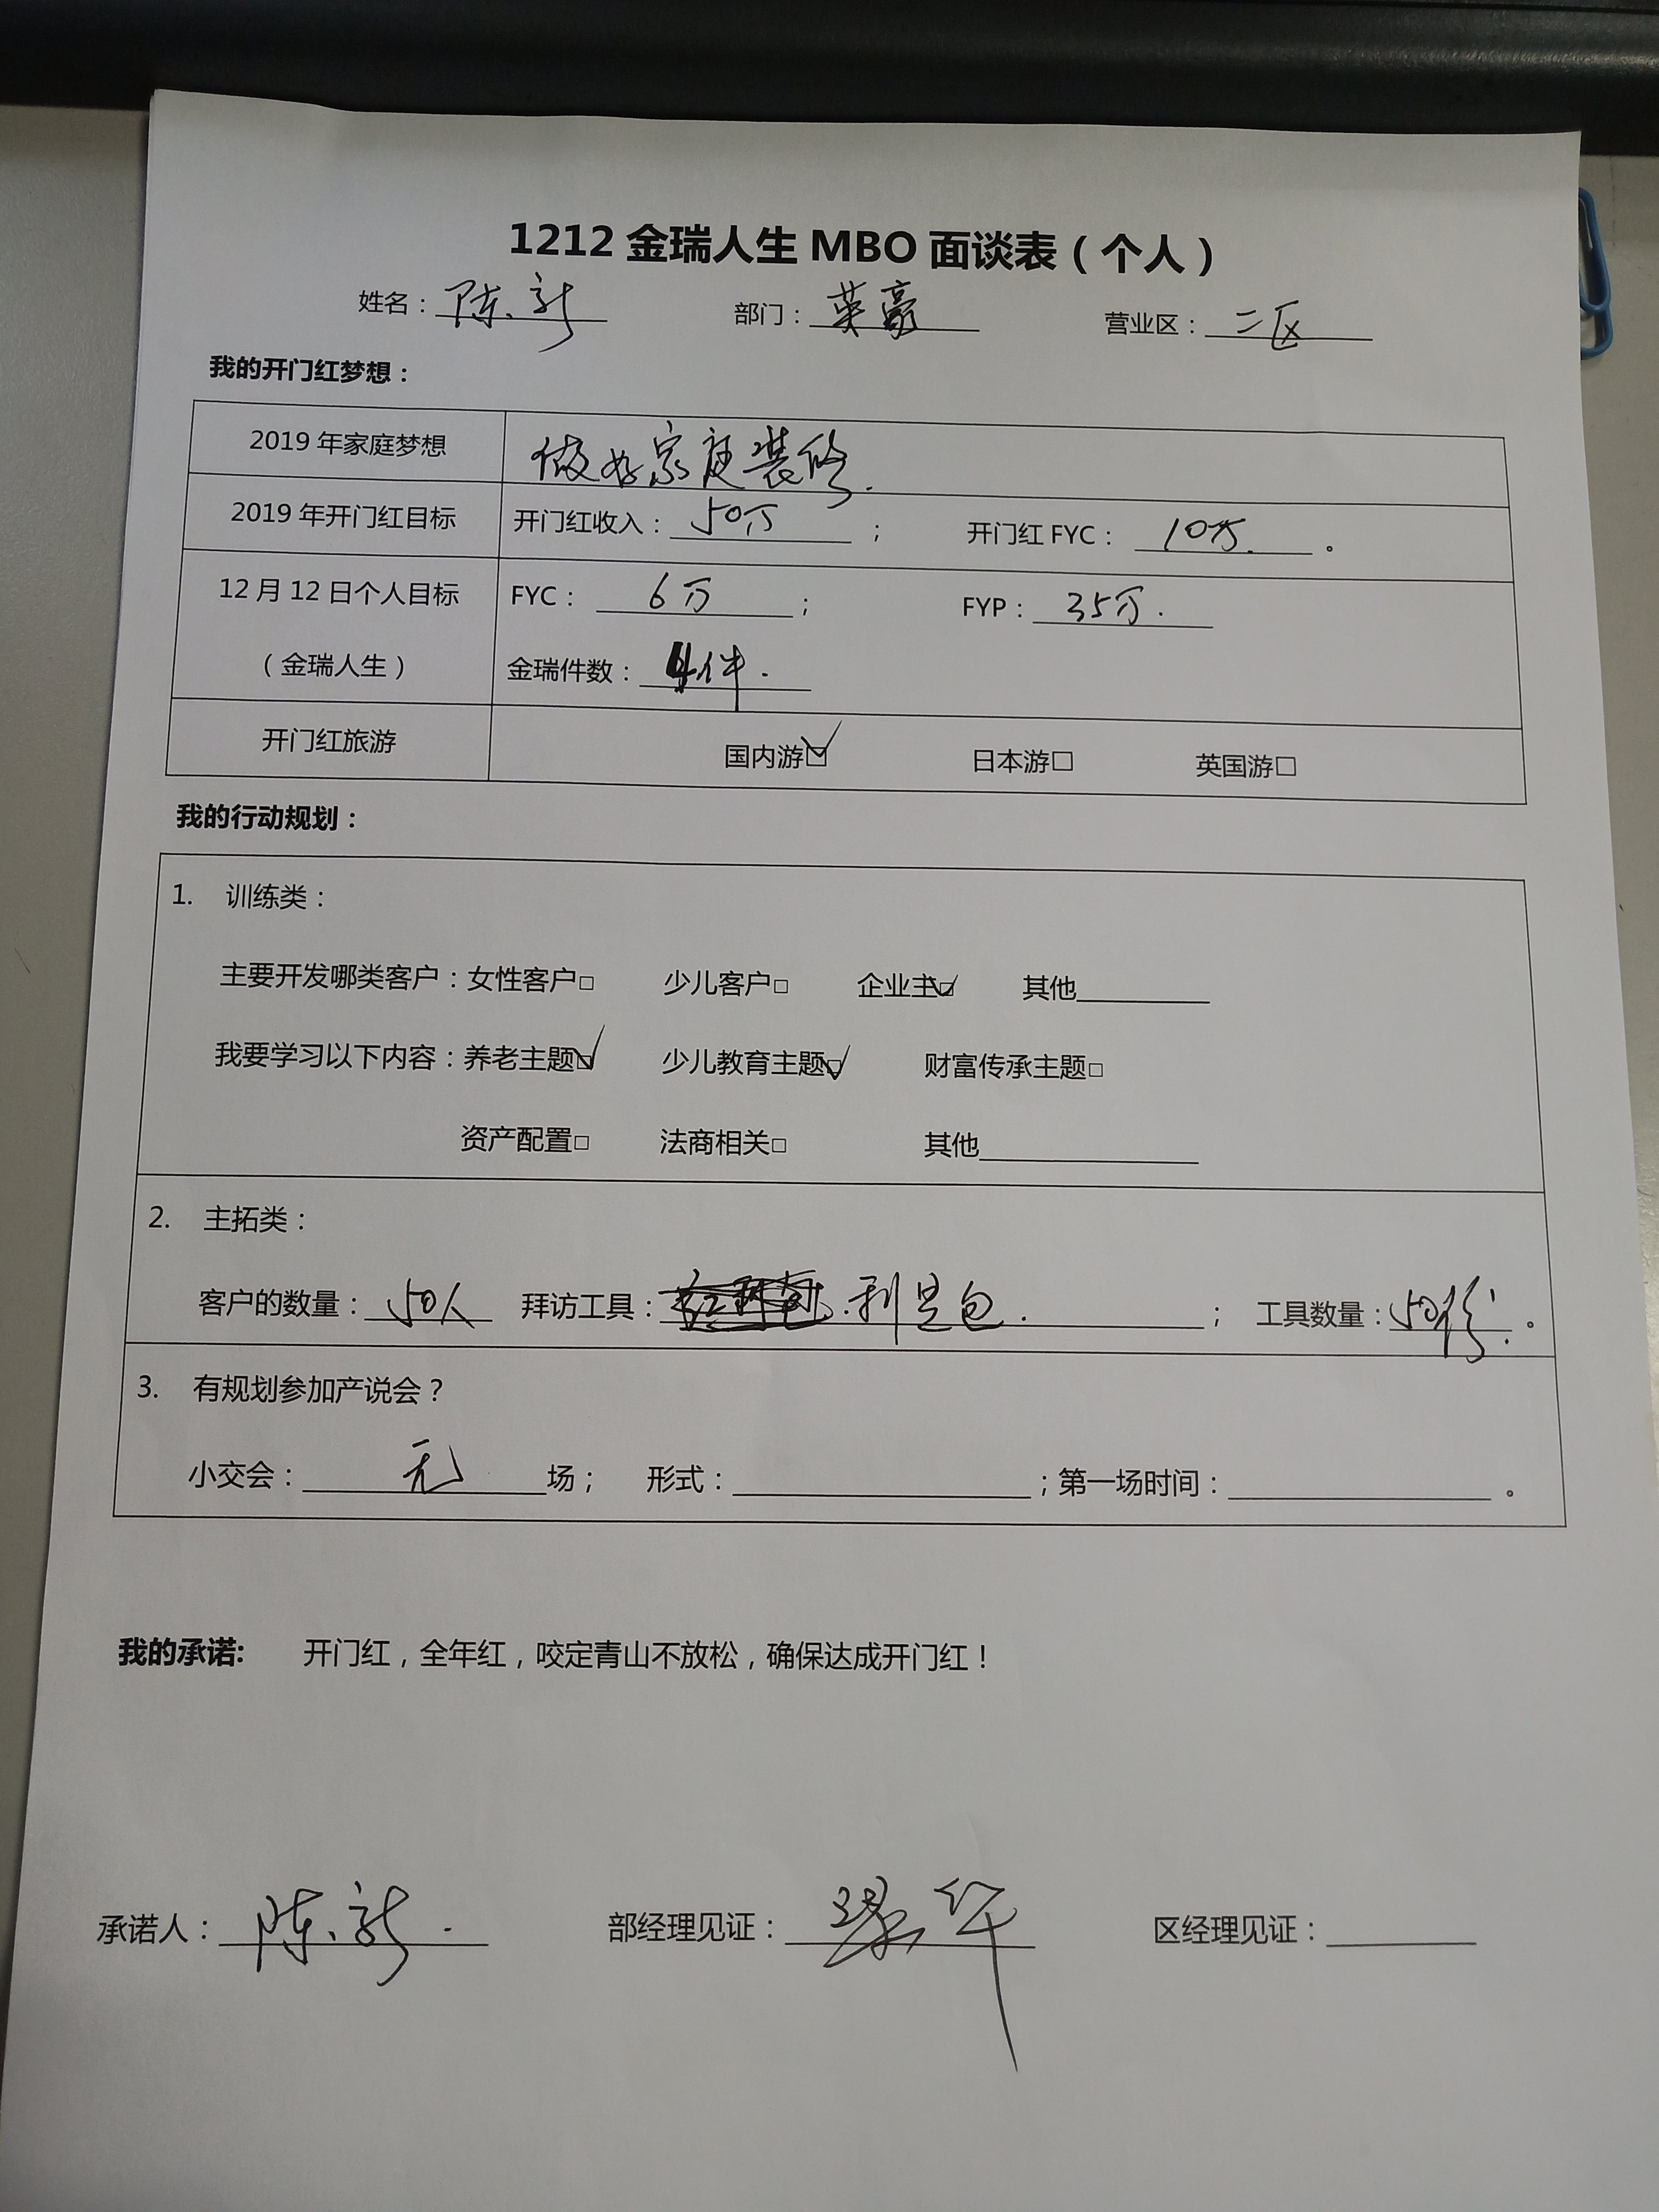 1212 金瑞人生 MBO 面谈表（个人）
姓名：陈新 部门：英豪 营业区：二区
我的开门红梦想：
2019 年家庭梦想 做好家庭装修.
2019 年开门红目标 开门红收入：50万； 开门红 FYC：10万.。
12 月 12 日个人目标 FYC：6万； FYP：35万.
（金瑞人生） 金瑞件数：4件.
开门红旅游 国内游☑ 日本游□ 英国游□
我的行动规划：
1. 训练类：
主要开发哪类客户：女性客户□ 少儿客户□ 企业主☑ 其他________
我要学习以下内容：养老主题☑ 少儿教育主题☑ 财富传承主题□
资产配置□ 法商相关□ 其他________
2. 主拓类：
客户的数量：50人 拜访工具：利是包.； 工具数量：50份.。
3. 有规划参加产说会？
小交会：无场； 形式：________；第一场时间：________。
我的承诺: 开门红，全年红，咬定青山不放松，确保达成开门红！
承诺人：陈新. 部经理见证：梁 区经理见证：________